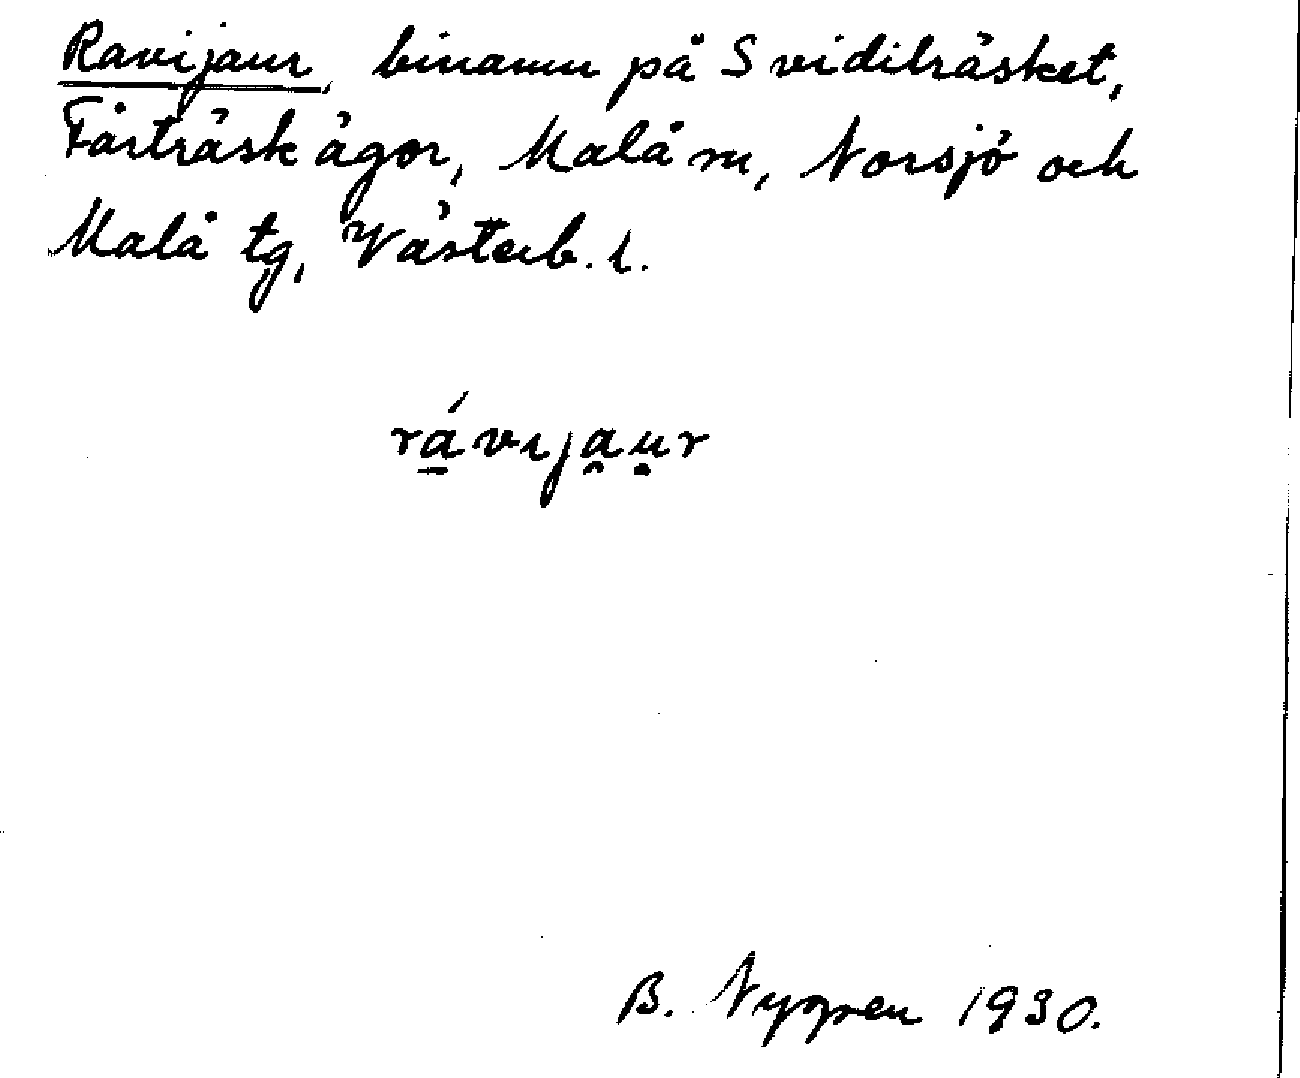 Ravijaur, binamn på Svidilträsket,
Fårträsk ägor, Malå sn, Norsjö och
Malå tg, Västerb. l.
rá̱vıja̯ụr
B. Nygren 1930.